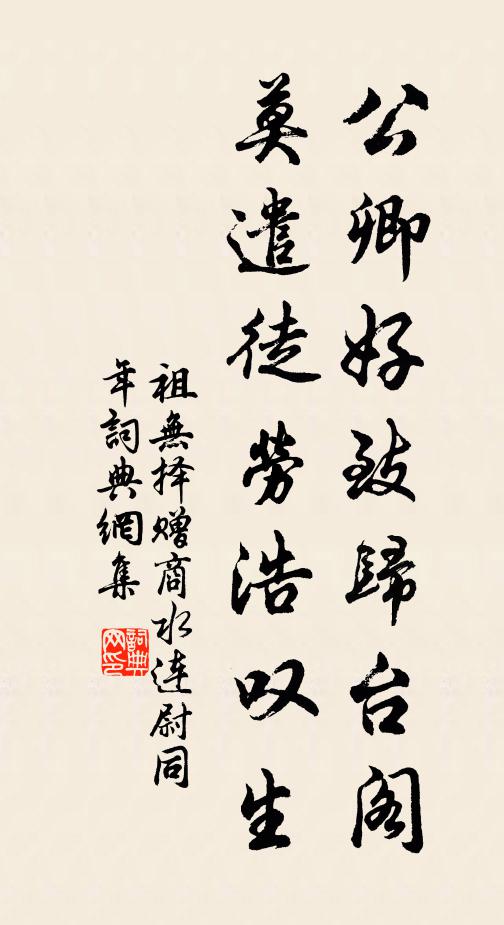 公卿好致歸台阁
莫遣徒勞浩叹生
祖無择赠商水連尉同
年詞典網集
詞典
网印